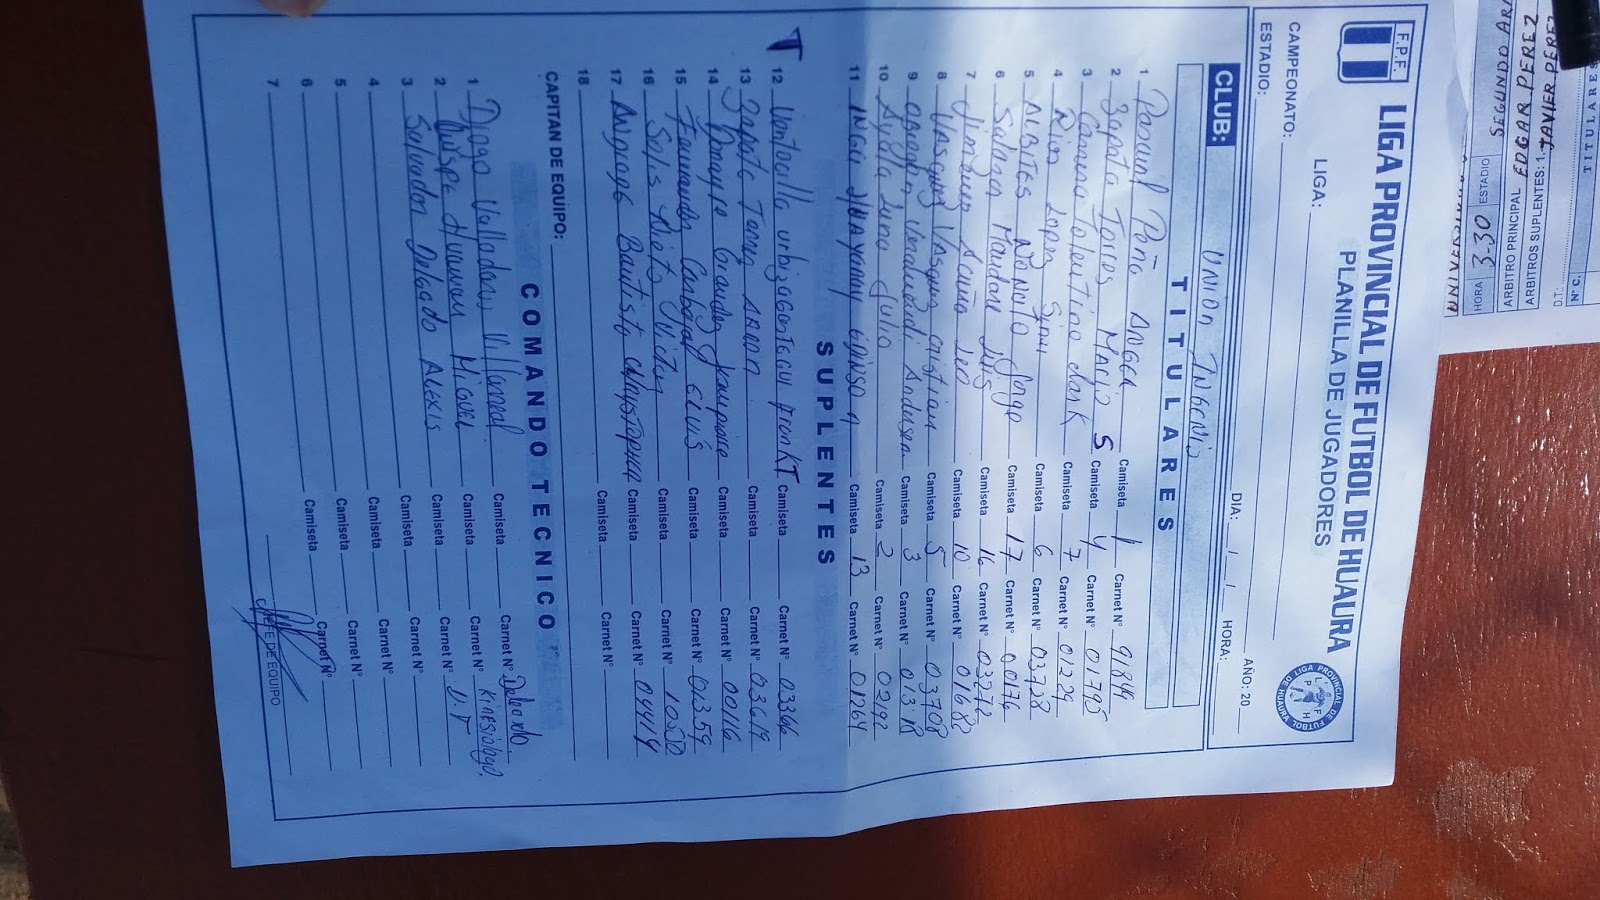 F.P.F.
LIGA PROVINCIAL DE FUTBOL DE HUAURA
PLANILLA DE JUGADORES
LIGA PROVINCIAL DE FUTBOL DE HUAURA
LPFH
CAMPEONATO: LIGA: AÑO: 20
ESTADIO: DIA: / / HORA:
CLUB: UNION INGENIO
TITULARES
1 Pascual Peña ANGEL Camiseta 1 Carnet N° 91844
2 Zapata Torres Mario S Camiseta 4 Carnet N° 01795
3 Camiseta 7 Carnet N° 01229
4 Rios Lopez Camiseta 6 Carnet N° 03728
5 ALBITES Jorge Camiseta 17 Carnet N° 00176
6 Salazar Luis Camiseta 16 Carnet N° 03272
7 Jimenez Acuña Leo Camiseta 10 Carnet N° 01688
8 VASQUEZ VASQUEZ cristian Camiseta 5 Carnet N° 03708
9 Camiseta 3 Carnet N°
10 Ayala Luna Julio Camiseta 2 Carnet N° 02192
11 Camiseta 13 Carnet N° 01264
SUPLENTES
12 Ventocilla Camiseta Carnet N° 03366
13 Zapata Torres Camiseta Carnet N° 03619
14 Camiseta Carnet N° 00116
15 Fernandez Carbajal Camiseta Carnet N° 01359
16 Solis Nieto Victor Camiseta Carnet N° 1050
17 Bautista Camiseta Carnet N° 04414
18 Camiseta Carnet N°
CAPITAN DE EQUIPO:
COMANDO TECNICO
1 Valladares Villarreal Camiseta Carnet N° Delegado.
2 Quispe Huaman MIGUEL Camiseta Carnet N° Kinesiologo.
3 Salvador Delgado ALEXIS Camiseta Carnet N° U.T
4 Camiseta Carnet N°
5 Camiseta Carnet N°
6 Camiseta Carnet N°
7 Camiseta Carnet N°
JEFE DE EQUIPO
HORA 3-30 ESTADIO SEGUNDO
ARBITRO PRINCIPAL EDGAR PEREZ
ARBITROS SUPLENTES: 1. JAVIER PEREZ
D.T.:
N° C. TITULARES